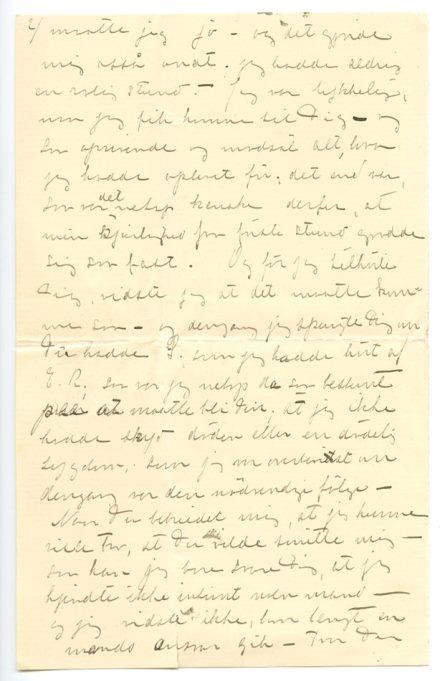 2/ maatte jeg jo – og det gjorde
mig også ondt. jeg hadde aldrig
en rolig stund. – Jeg var lykkelig,
naar jeg fik komme til Dig – og
saa og modsat alt, hvad
jeg hadde oplevet før; det end var,
saa var det netop kanske derfor, at
min kjærlighed fra første stund grodde
sig saa fast. Og før jeg tilhørte
Dig, vidste jeg at det maatte kom-
me saa – og dengang jeg spurgte Dig om
Du hadde S., som jeg hadde hørt af
E. R., saa var jeg netop da saa bestemt
paa at maatte bli Din, at jeg ikke
hadde skyd døden eller en dødelig
sygdom, som jeg var overbevist om
dengang var den nødvendige følge –
Naar Du bebreidet mig, at jeg kunne
ville tro, at Du vilde smitte mig –
saa kan jeg bare svare Dig, at jeg
kjendte ikke intimt noen mand –
og jeg vidste ikke, hvor langt en
mands ansvar gik – Tror Du